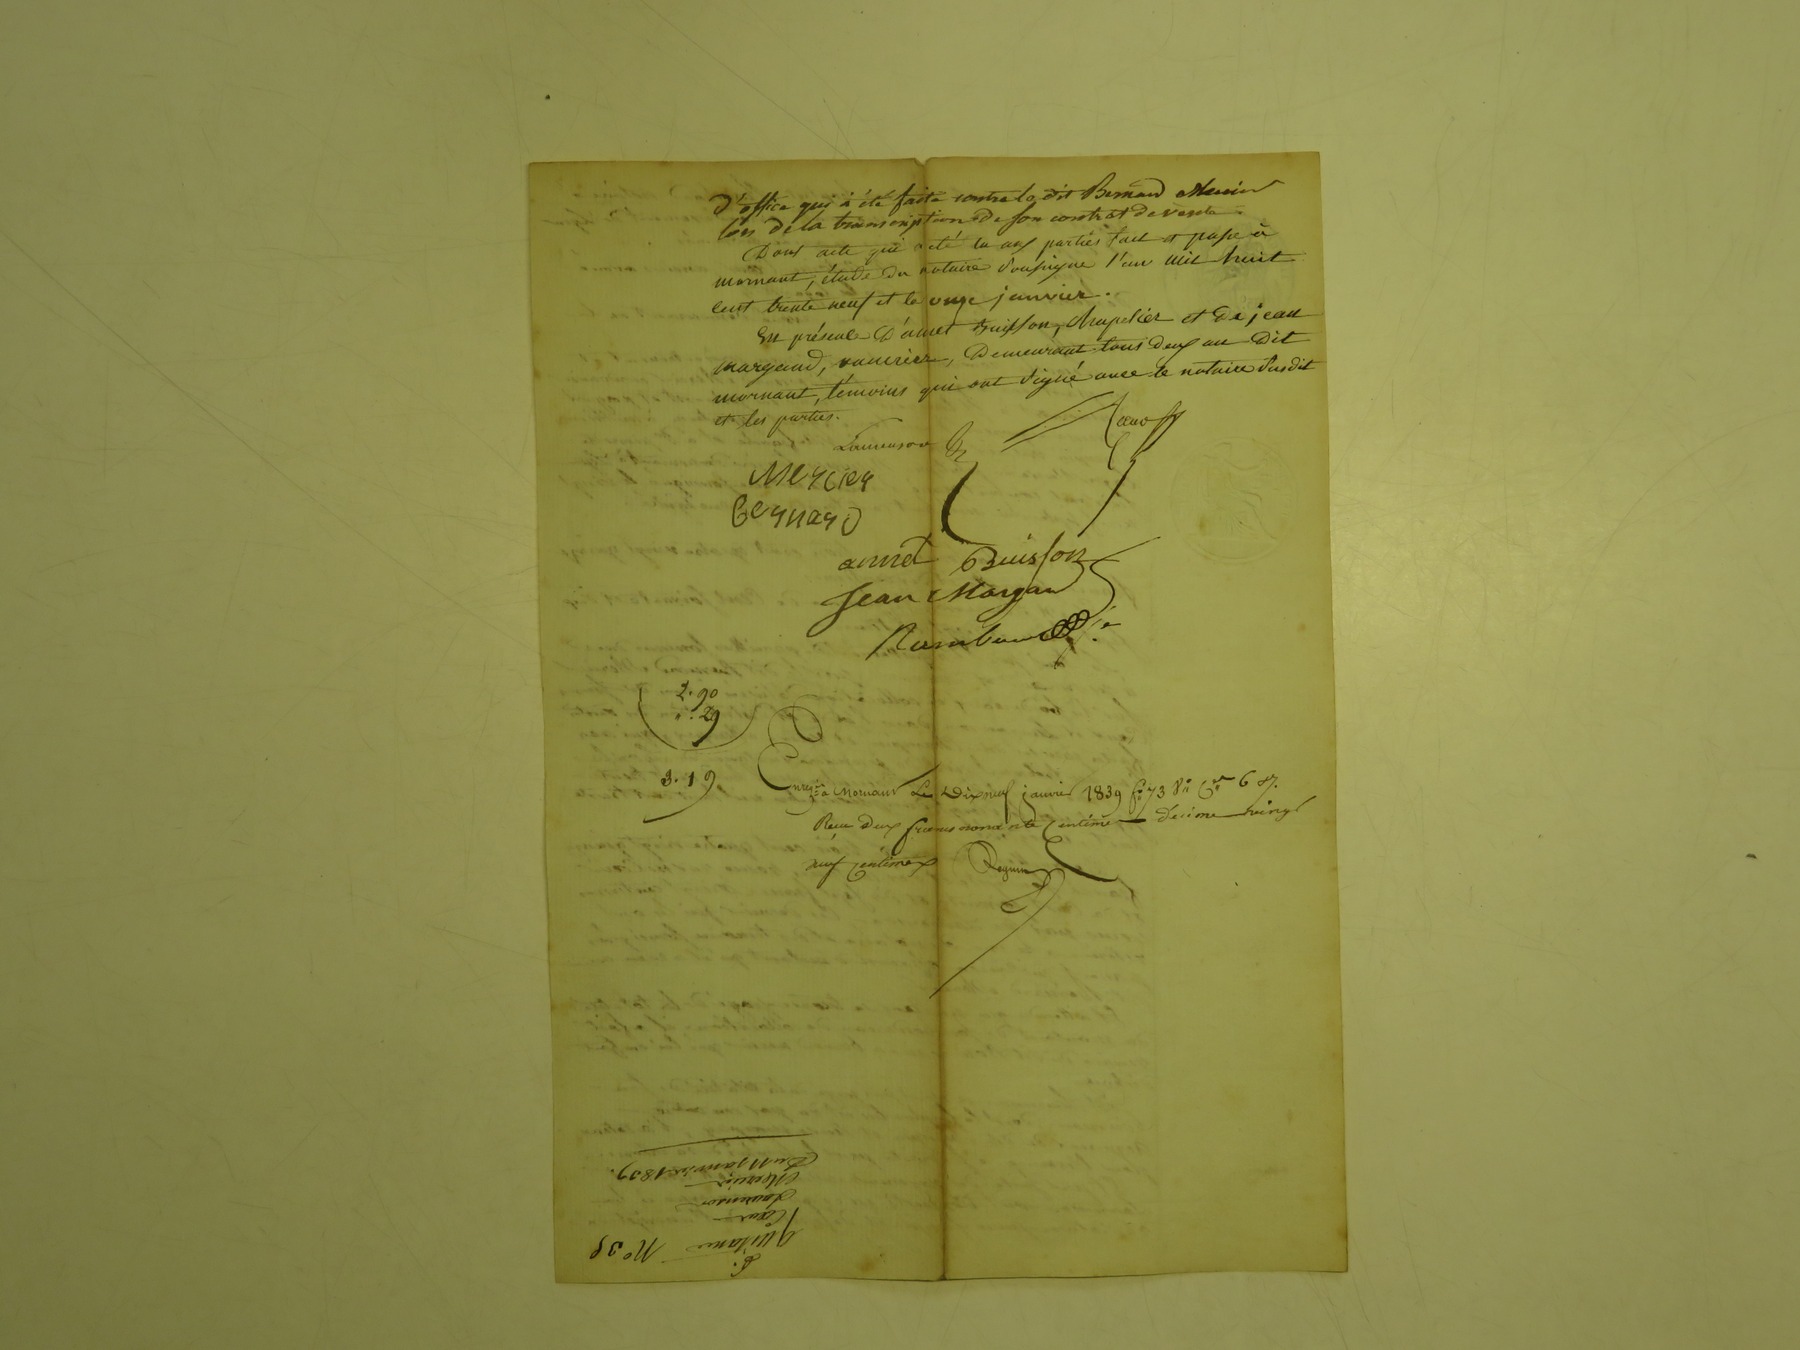 D'office qui à été faite contre le dit Bernard Mercier
lors de la transcription de son contrat de vente.
Dont acte qui a été lu aux parties fait et passé à
mornant, étude du notaire soussigné l'an mil huit
cent trente neuf et le onze janvier.
En présence d'amet Buisson, chapelier et de jean
margand, demeurant tous deux au dit
mornant, témoins qui ont signé avec le notaire susdit
et les parties.
Laurenson
Mercier
Bernard
amet Buisson
Jean Margan
2.90
".29
3.19
Enreg. à Mornant Le Dix neuf janvier 1839 f° 73 V° C. 6
Reçu deux francs nonante centimes decime vingt
neuf centimes
N° 35
Quittance
Laurenson
Mercier
Du 11 janvier 1839.